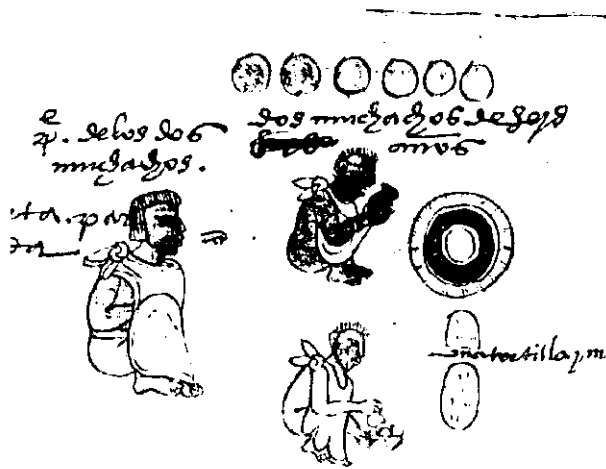 pᵉ. delos dos
muchachos.
dos muchachos de seys
años
ita. par
ta
una tortilla y m